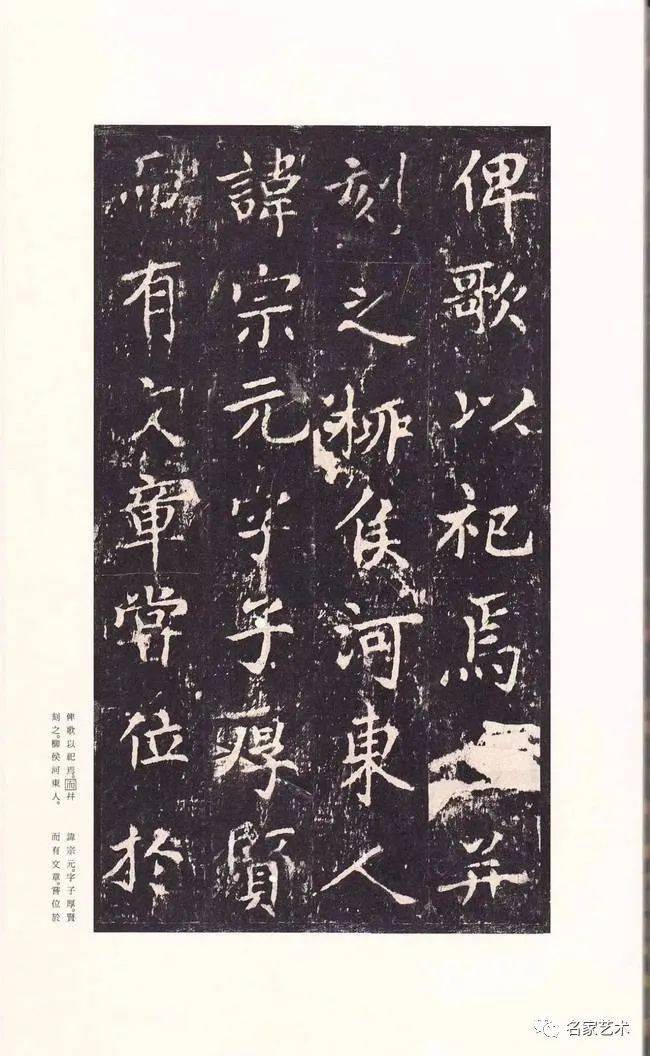 俾歌以祀焉并
刻之栁侯河東人
諱宗元字子厚賢
而有文章嘗位於
俾歌以祀焉。而幷
刻之。柳侯河東人。
諱宗元。字子厚。賢
而有文章。嘗位於
名家艺术